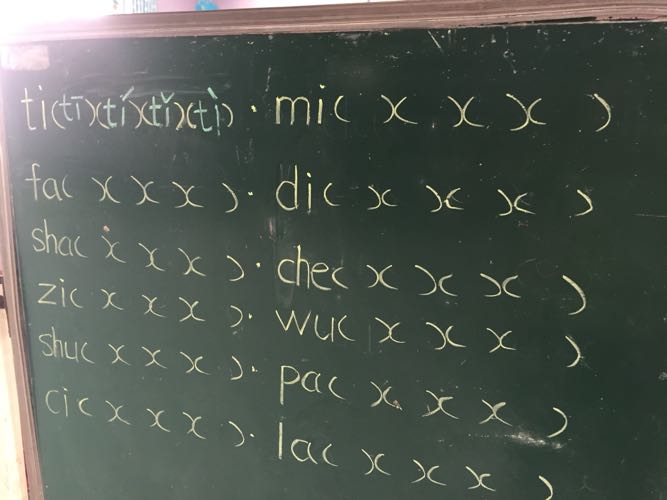 ti(tī)(tí)(tǐ)(tì)·mi( )( )( )( )
fa( )( )( )( )·di( )( )( )( )
sha( )( )( )( )·che( )( )( )( )
zi( )( )( )( )·wu( )( )( )( )
shu( )( )( )( )·pa( )( )( )( )
ci( )( )( )( )·la( )( )( )( )